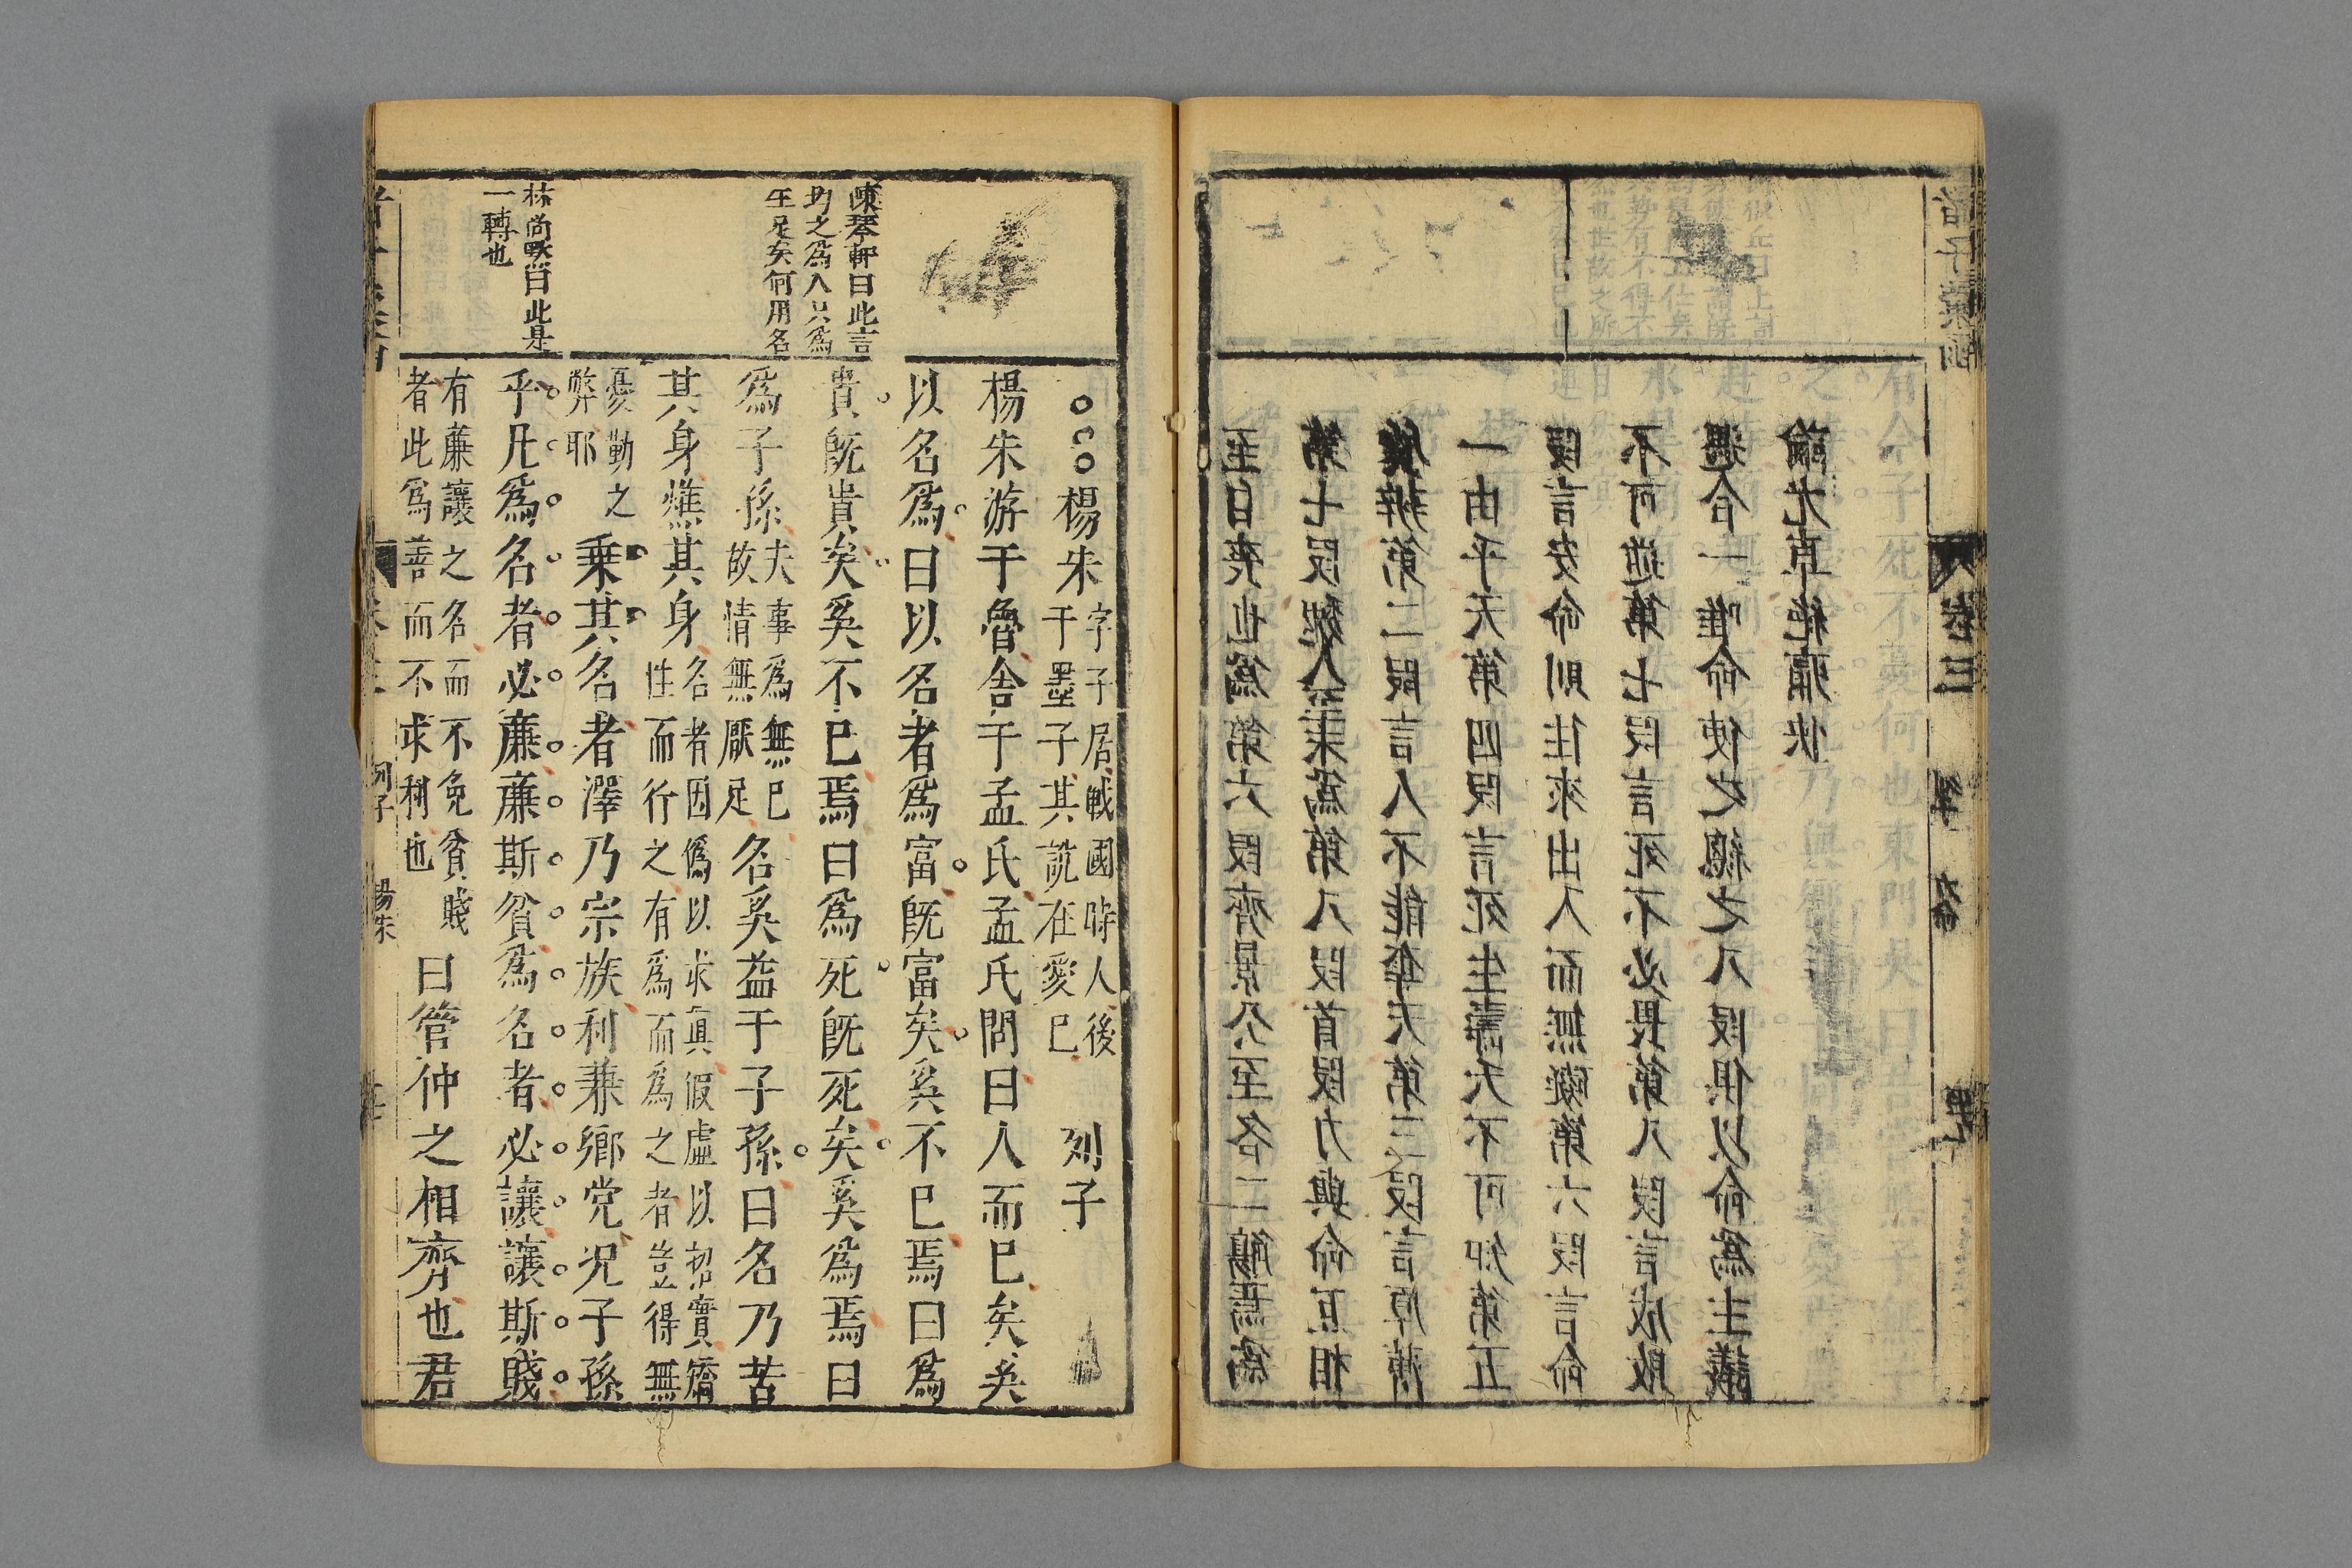 至日喪也為第六段齊景公至各二觴焉為
第七段魏人至末為第八段首段力與命互相
發辨第二段言人不能奪天第三段言厚薄
一由乎天第四段言死生壽夭不可知第五
段言安命則往來出入而無礙第六段言命
不可逆第七段言死不必畏第八段言成敗
遇合一唯命使之總之八段俱以命為主議
論尤卓絕痛快
卷三
陳琴軒曰此言
灼之為人只為
生足矣何用名
林尚默曰此是
一轉也
楊朱
字子居戰國時人後
于墨子其說在愛已
列子
楊朱游于魯舍于孟氏孟氏問曰人而已矣奚
以名為曰以名者為富既富矣奚不已焉曰為
貴既貴矣奚不已焉曰為死既死矣奚為焉曰
為子孫
夫事為無已
故情無厭足
名奚益于子孫曰名乃苦
其身燋其身
名者因偽以求眞假虛以招實矯
性而行之有為而為之者豈得無
憂勤之
弊耶
乗其名者澤乃宗族利兼鄉党况子孫
乎凡為名者必廉廉斯貧為名者必讓讓斯賤
有廉讓之名而不免貧賤
者此為善而不求利也
曰管仲之相齊也君
列子
楊朱